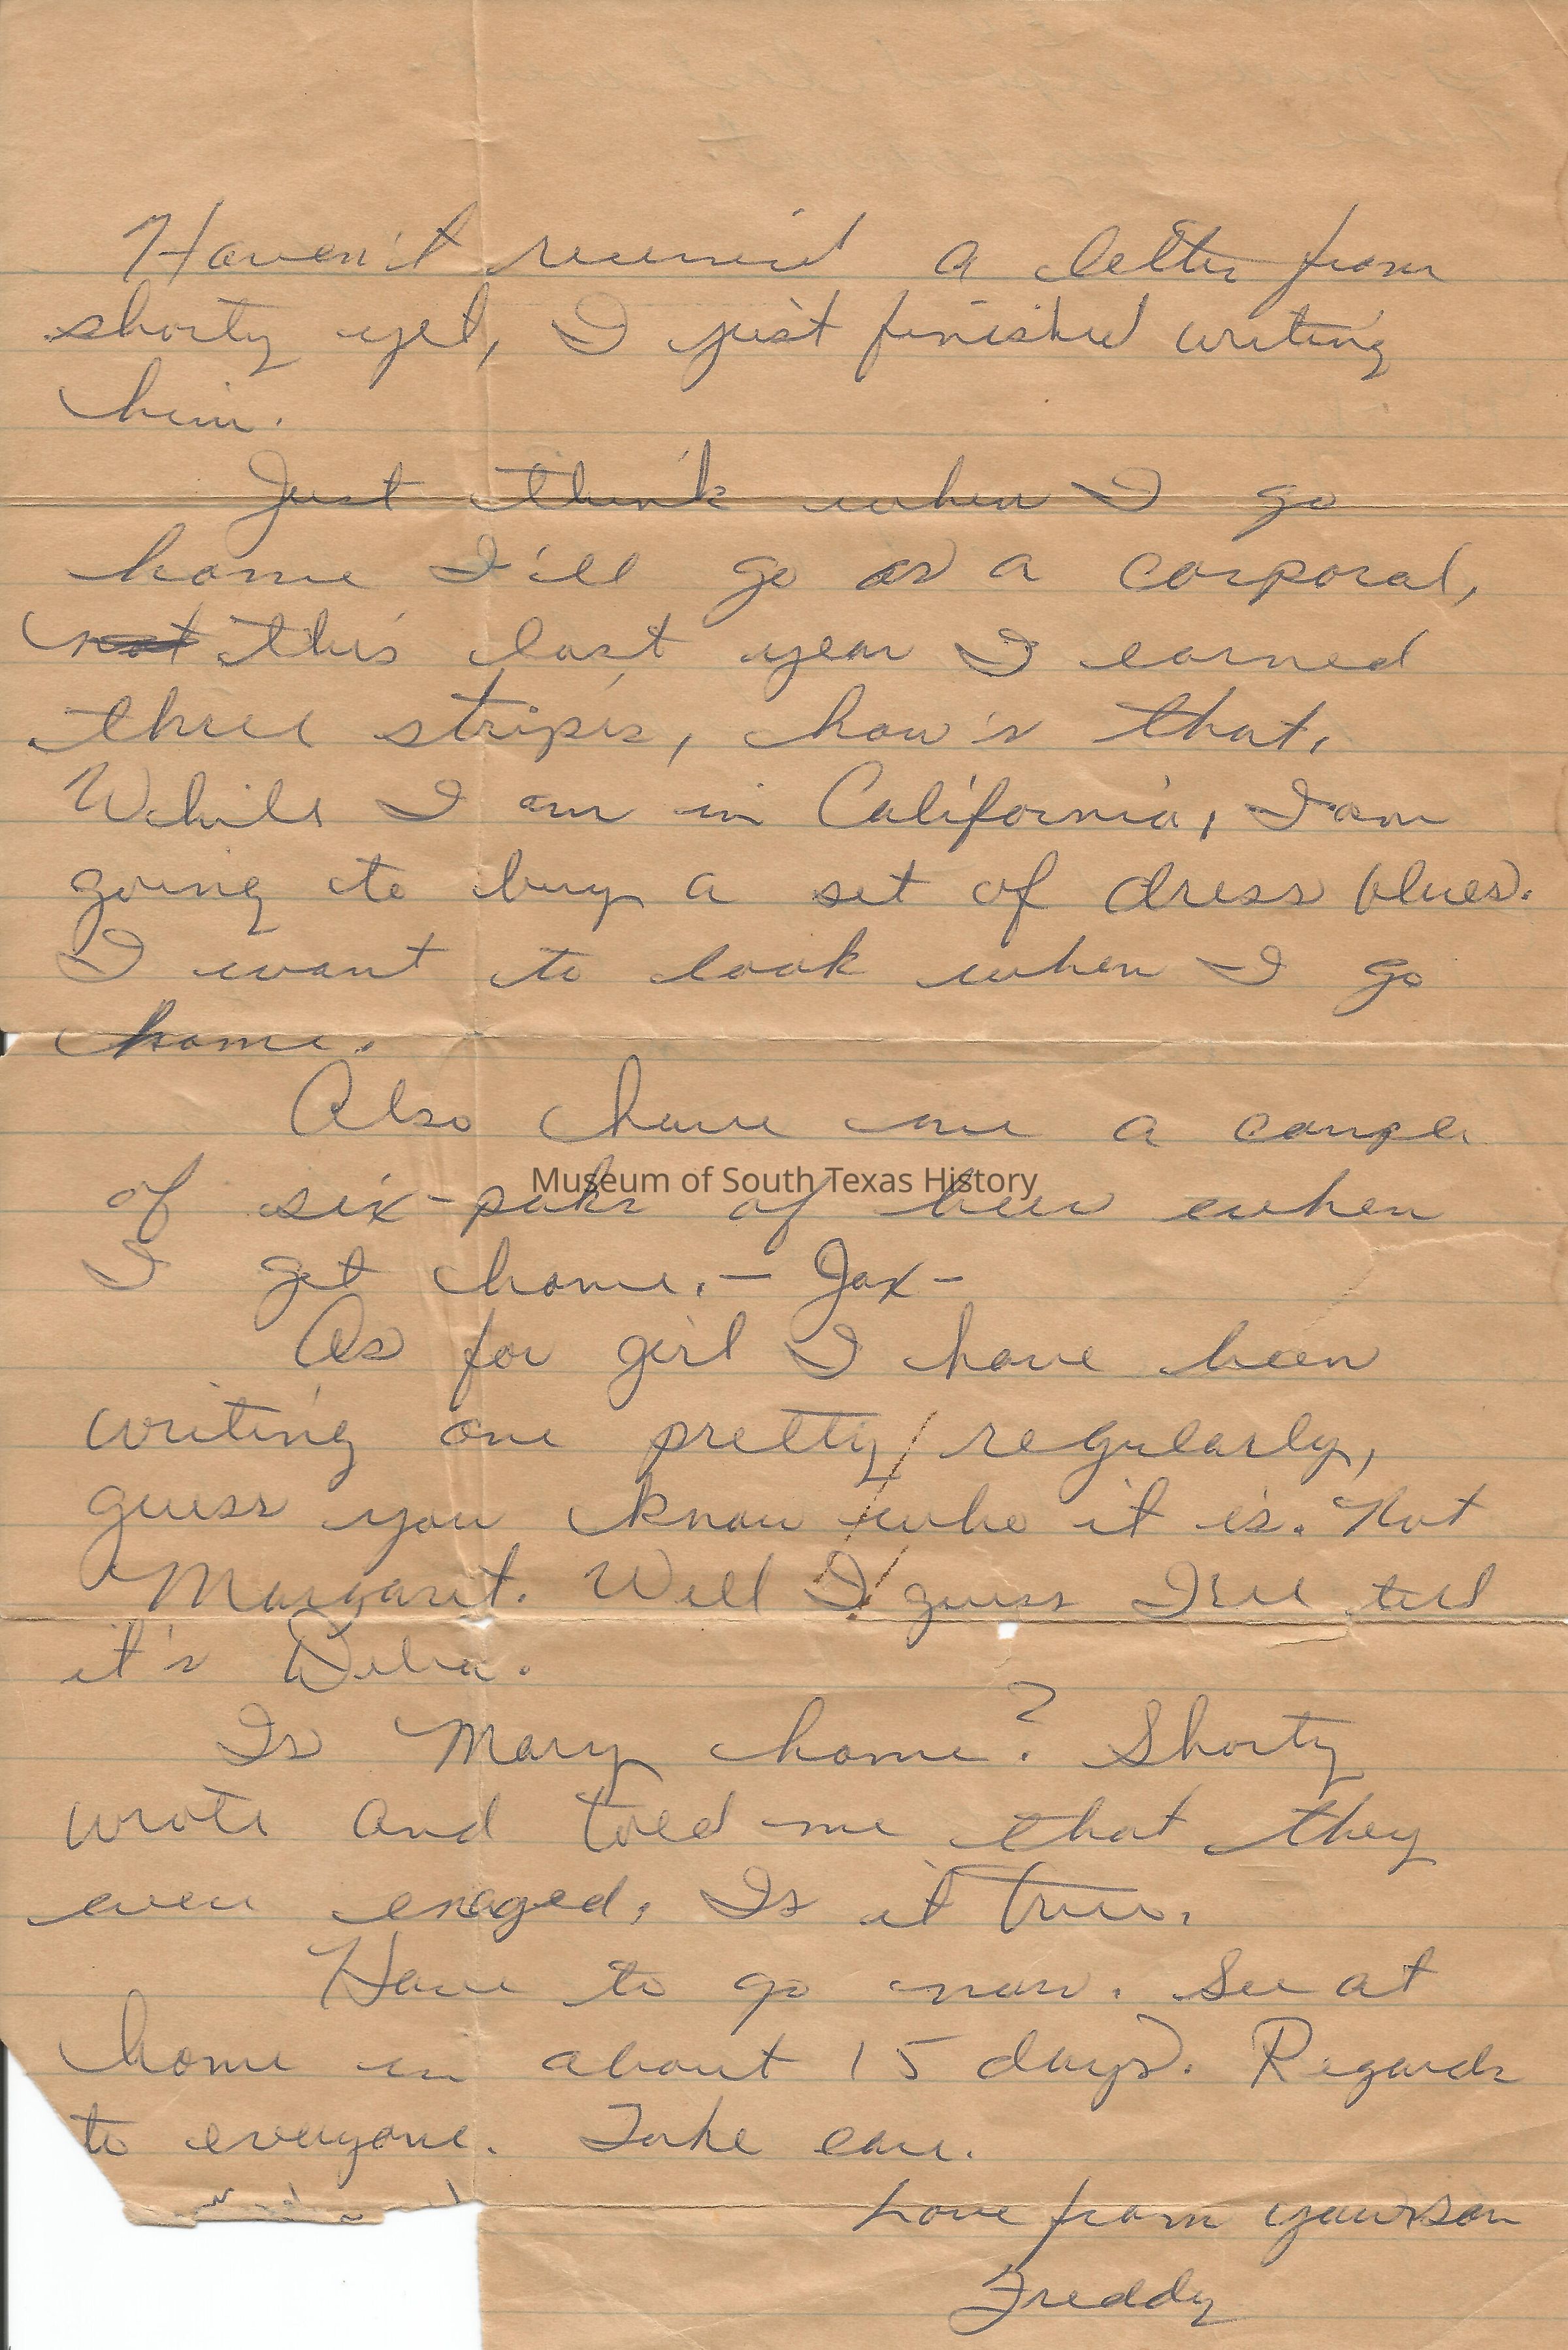 Haven't received a letter from
shorty yet, I just finished writing
him.
Just think when I go
home I'ill go as a corporal,
not this last year I earned
three stripes, how's that.
While I am in California, I am
going to buy a set of dress blues.
I want to look when I go
home.
Also have me a coupe
Museum of South Texas History
of six-paks of beer when
I get home. - Jax -
As for girl I have been
writing one pretty regularly,
guess you know who it is. Not
Margaret. Well I guess I'll tell
it's Delia.
Is Mary home? Shorty
wrote and told me that they
even enaged. Is it true.
Have to go now. See at
home in about 15 days. Regards
to everyone. Take care.
Love from your son
Freddy